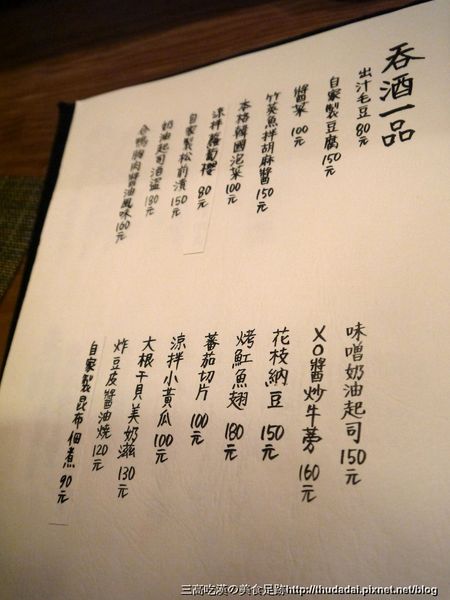 呑酒一品
出汁毛豆 80元
自家製豆腐 150元
醬菜 100元
竹莢魚拌胡麻醬 150元
本格韓國泡菜 100元
涼拌蘿蔔櫻 80元
自家製松前漬 150元
奶油起司酒盜 180元
合鴨胸肉醬油風味 160元
味噌奶油起司 150元
XO醬炒牛蒡 160元
花枝納豆 150元
烤魟魚翅 180元
蕃茄切片 100元
涼拌小黃瓜 100元
大根干貝美奶滋 130元
炸豆皮醬油燒 120元
自家製昆布佃煮 90元
三高吃漢の美食足跡http://thudadai.pixnet.net/blog